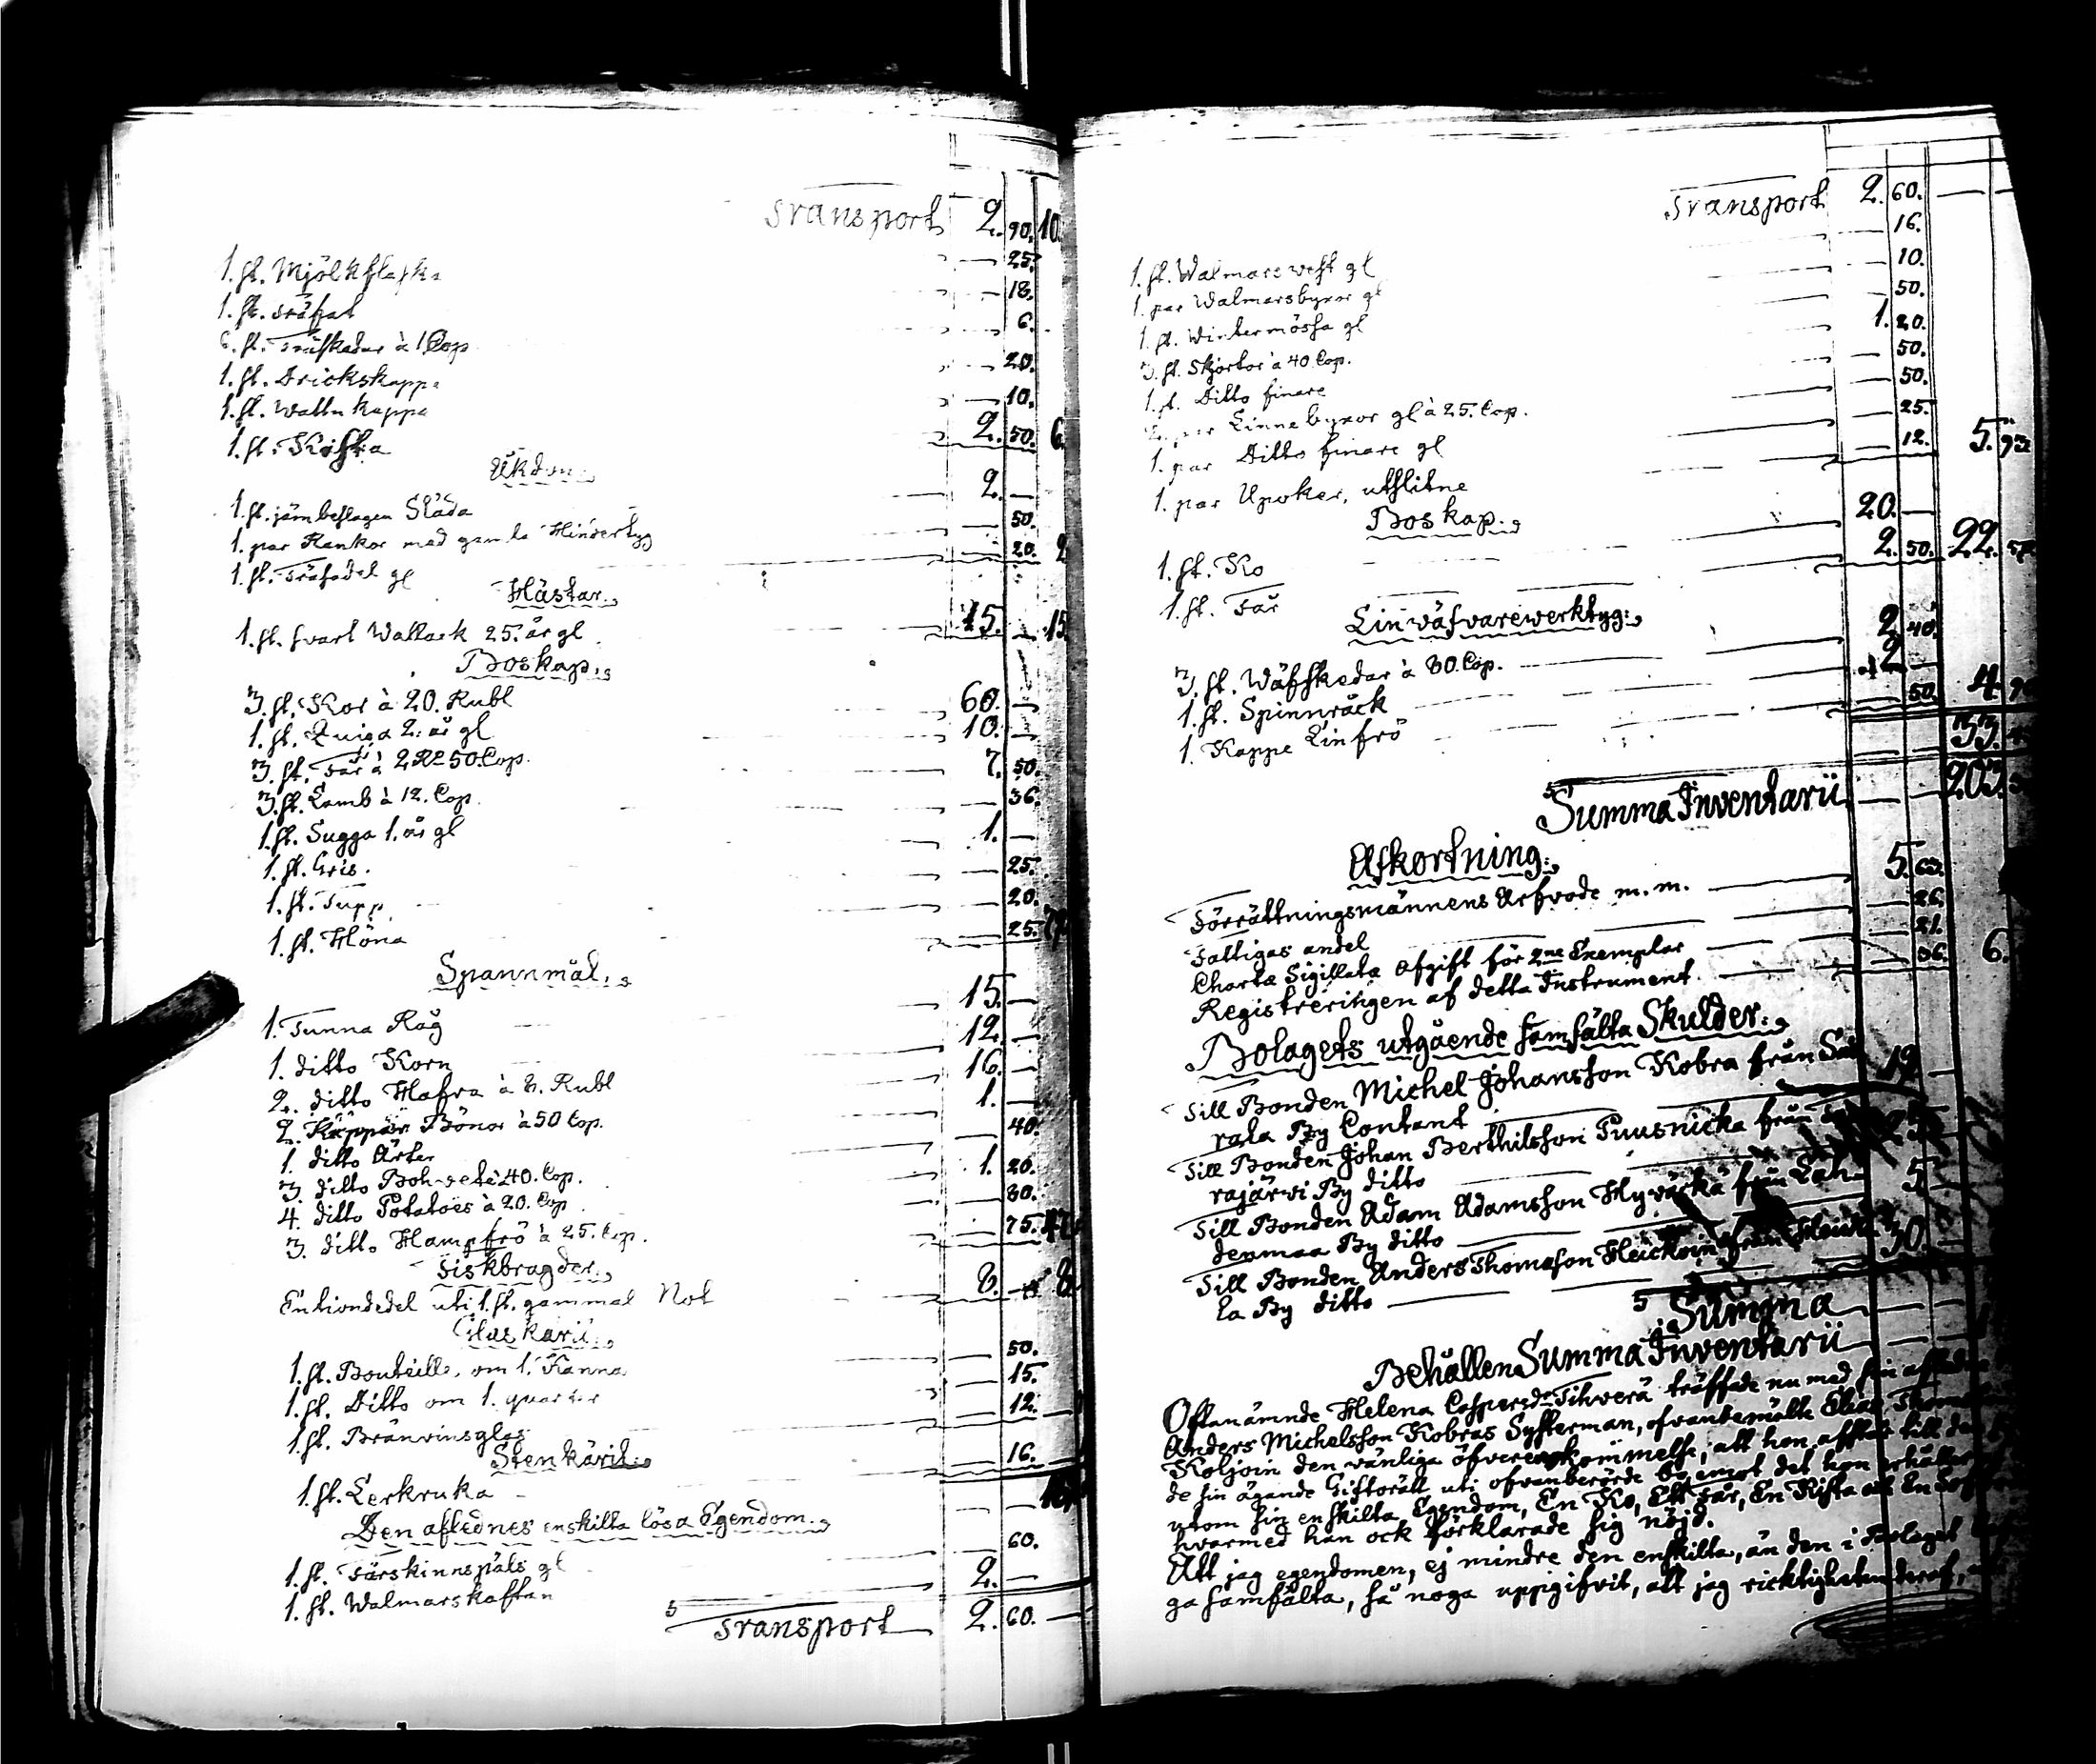 Transport 2. 90. 10.
1. st. Mjölkflaska 25.
1. st. Träfat 18.
6. st. Träskedar à 1 Cop 6.
1. st. Drickskappa 20.
1. st. Wattu kappa 10.
1. st. Kista 2. 50. 6.
Åkdon:
1. st. järnbeslagen Släda 2. —
1. par Rankor med gamla Hindertyg 50.
1. st. Träsadel gl 20. 2
Hästar:
1. st. svart Wallack 25. år gl 15. — 15.
Boskap:
3. st. Kor à 20. Rubl 60. —
1. st. Quiga 2. år gl 10. —
3. st. Får à 2 Rl 50. Cop. 7. 50.
3. st. Lamb à 12. Cop. 36.
1. st. Sugga 1. år gl 1. —
1. st. Gris. 25.
1. st. Tupp 20.
1. st. Höna 25. 79
Spannmål:
1. Tunna Råg 15. —
1. ditto Korn 12. —
2. ditto Hafra à 8. Rubl 16. —
2. Kappar Bönor à 50 Cop. 1. —
1. ditto Ärter 40.
3. ditto Bohvete à 40. Cop. 1. 20.
4. ditto Potatoes à 20. Cop 80.
3. ditto Hampfrö à 25. Cop. 75. 47.
Fiskbragder:
En tiondedel uti 1. st. gammal Not 8. — 8.
Glaskäril:
1. st. Bouteille, om 1. Kanna 50.
1. st. Ditto om 1. quarter 15.
1. st. Bränvinsglas 12.
Stenkäril:
1. st. Lerkruka 16.
Den aflednes enskilta lösa Egendom:
1. st. Fårskinnspäls gl 60.
1. st. Walmarskaftan 2. —
Transport 2. 60. —
Transport 2. 60. —
1. st. Walmarsvest gl 16.
1. par Walmarsbyxor gl 10.
1. st. Wintermössa gl 50.
3. st. Skjortor à 40. Cop. 1. 20.
1. st. Ditto finare 50.
2. par Linnebyxor gl à 25. Cop. 50.
1. par Ditto finare gl 25.
1. par Upoker, utslitne 12. 5. 93
Boskap:
1. st. Ko 20. —
1. st. Får 2. 50. 22. 50
Linväfvarewerktyg:
3. st. Wäfskedar à 80. Cop. 2. 40.
1. st. Spinnråck 2 —
1. Kappe Linfrö 50. 4. 90
33.
Summa Inventarii 203.
Afkortning:
Förrättningsmännens Arfvode m. m. 5. 63.
Fattigas andel 26.
Charta Sigillata Afgift för 2ne Exemplar 21.
Registreringen af detta Instrument 36. 6.
Bolagets utgående samfälta Skulder:
Till Bonden Michel Johansson Kobra från Sai
rala By Contant 19 —
Till Bonden Johan Berthilsson Puusnicka från
rajärwi By ditto
Till Bonden Adam Adamsson Hyväkä från Lah
denmaa By ditto 5.
Till Bonden Anders Thomasson Heickoin från Heick
la By ditto 30.
Summa
Behållen Summa Inventarii
Oftanämnde Helena Caspersdr Tihverä träffade nu med sin
Anders Michelsson Kobras Systerman, ofvanbemälte Elias
Koljoin den vänliga öfverenskommelse, att hon afstår till
de sin ägande Giftorätt uti ofvanberörde bo emot det hon erhåller
utom sin enskilta Egendom, En Ko, Ett Får, En Kista och En
hvarmed han ock förklarade sig nöjd.
Att jag egendomen, ej mindre den enskilta, än den i Bolaget
ga samfälta, så noga uppgifvit, att jag ricktigheten deraf,